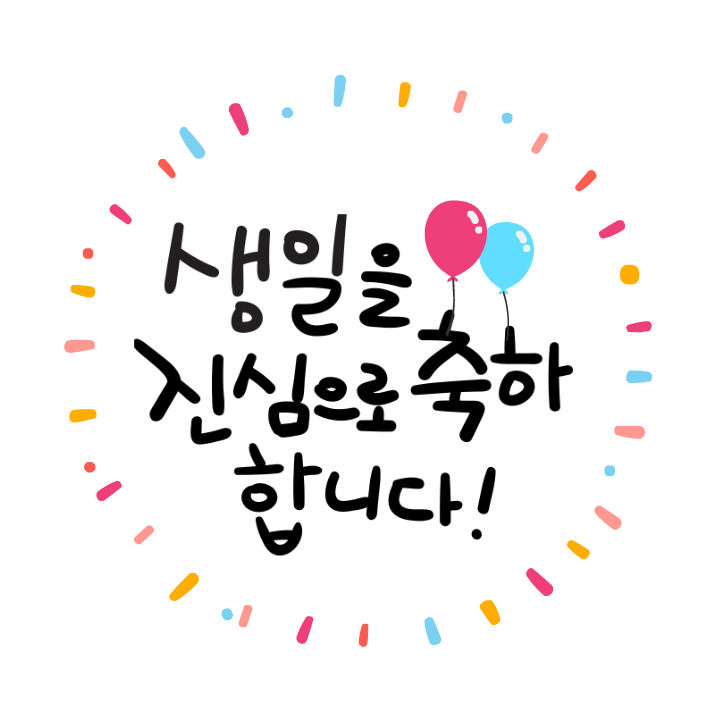 생일을
진심으로 축하
합니다!